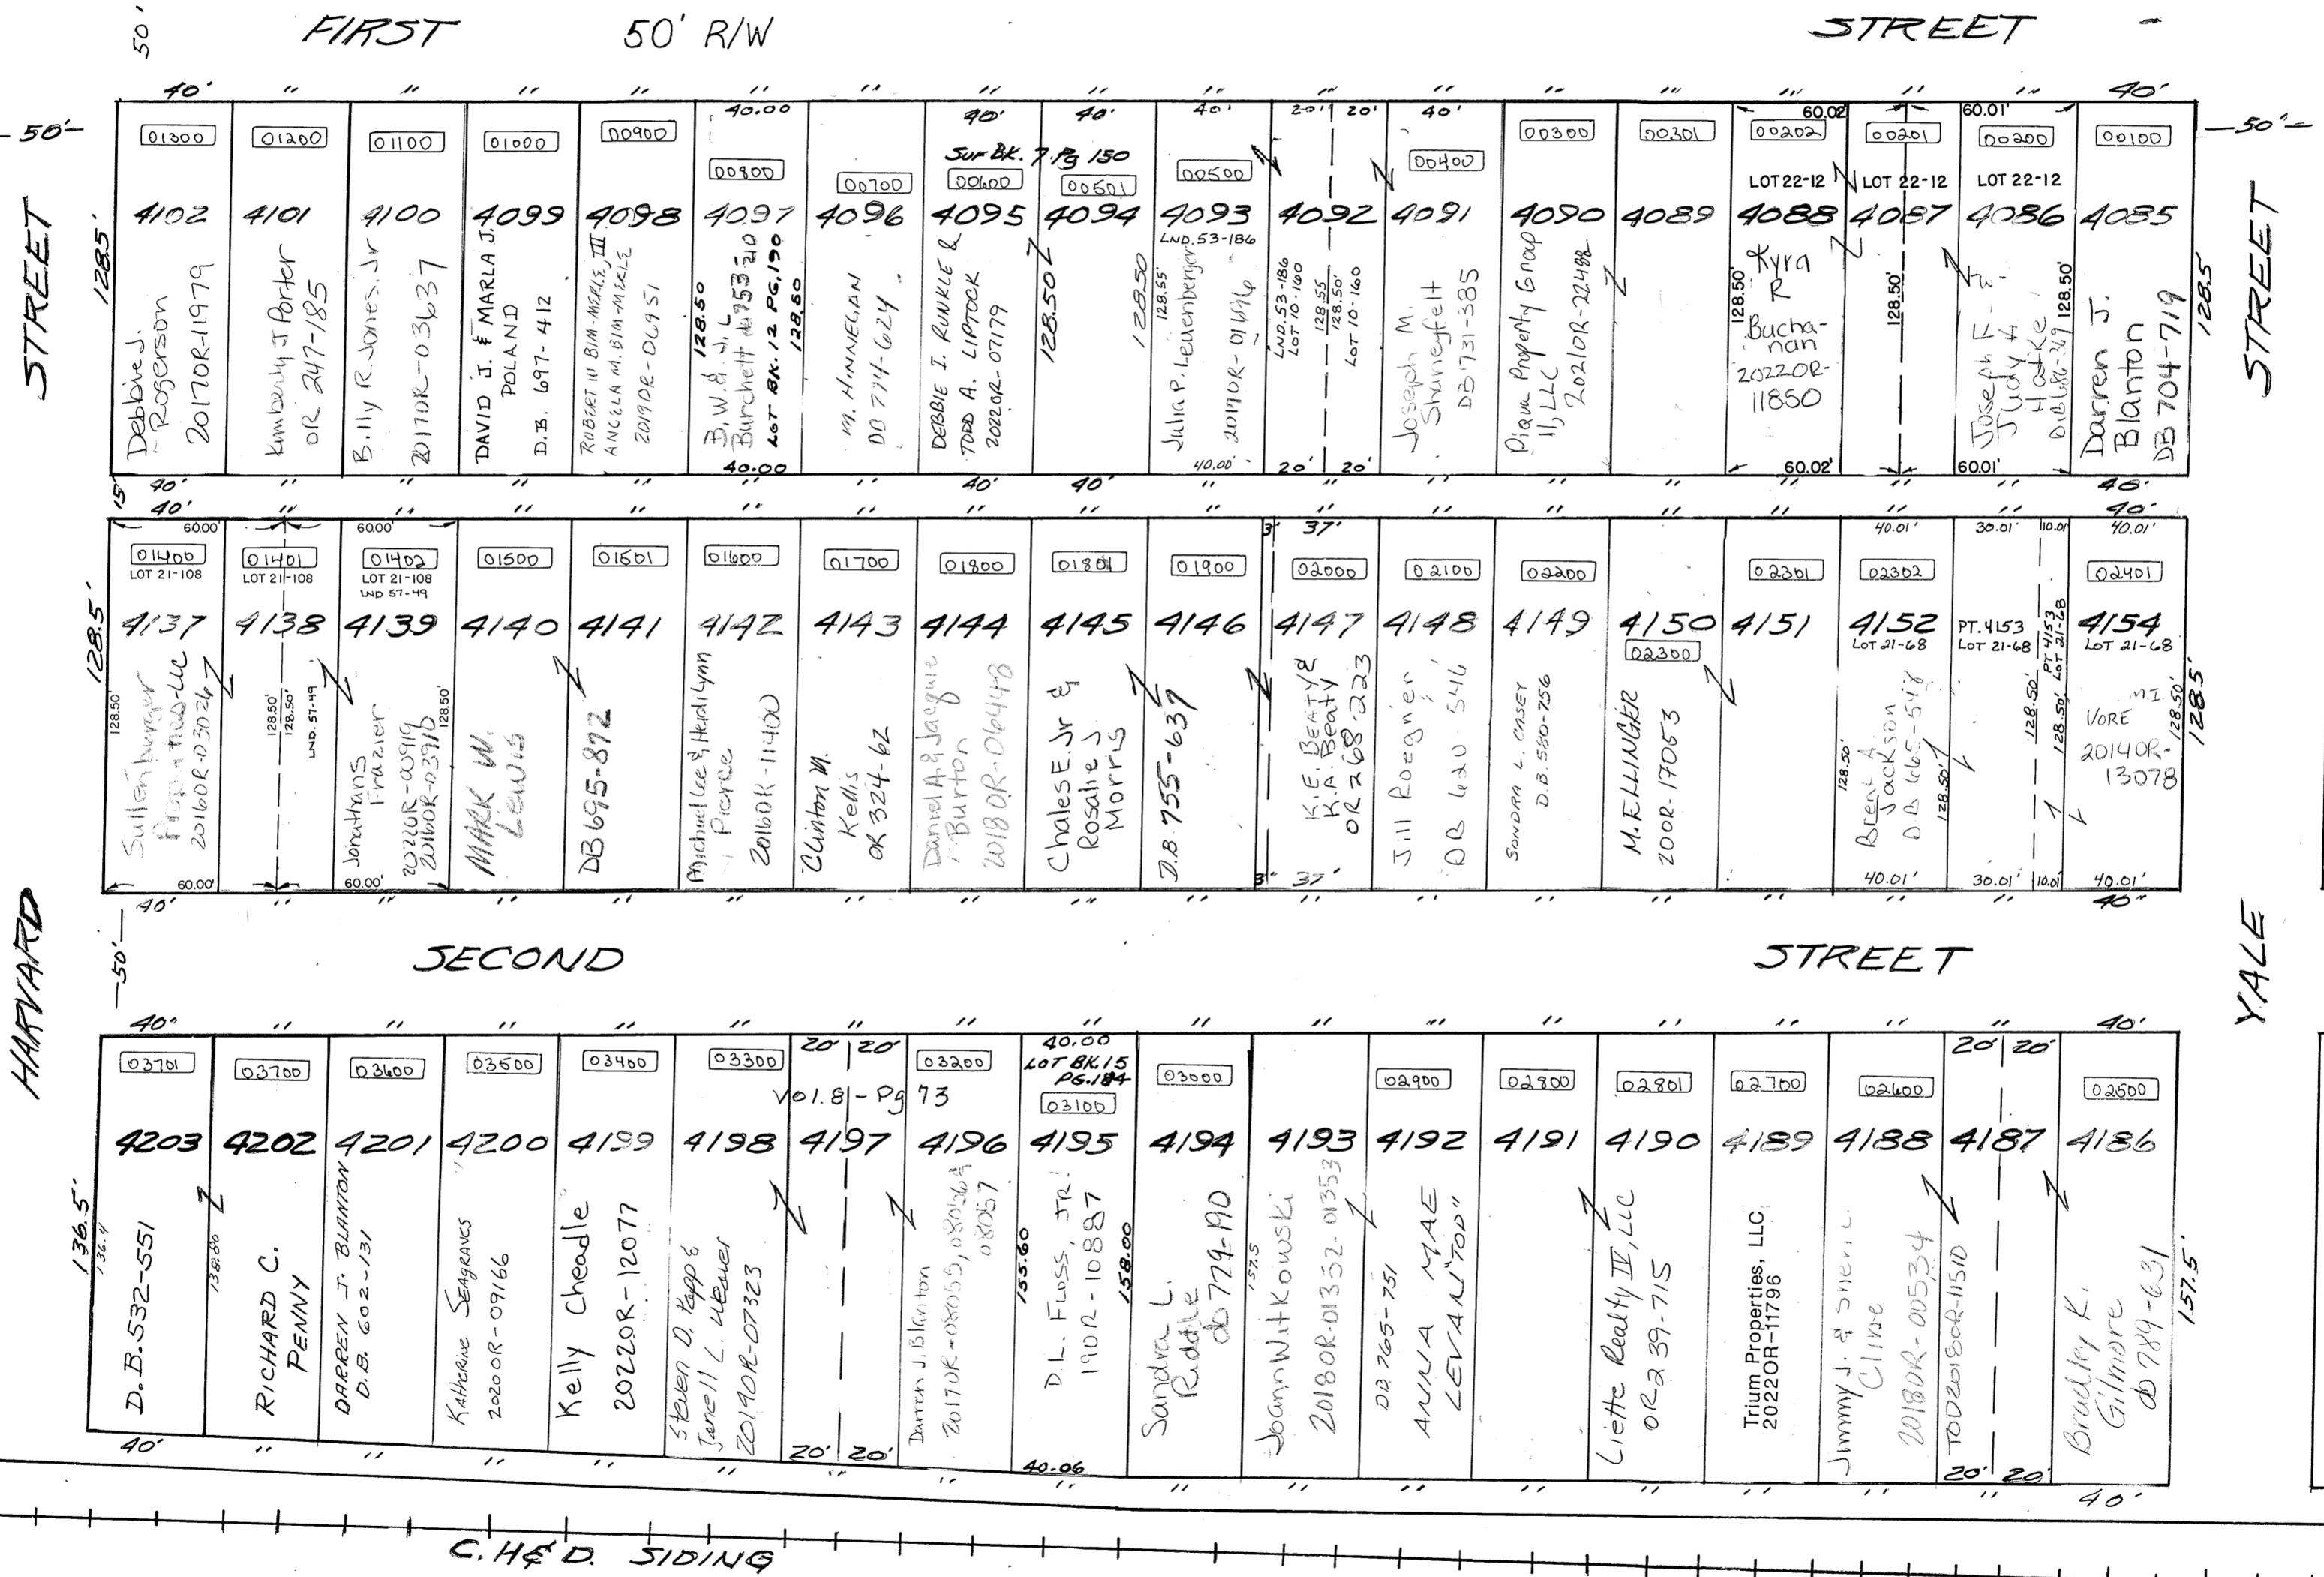 50' FIRST 50' R/W STREET
40' " " " " " " " " " " " " " " " " 40'
50' 50'
STREET STREET
128.5' 128.5'
01300
4102
Debbie J.
Rogerson
2017OR-11979
01200
4101
Kimberly J Porter
OR 247-185
01100
4100
Billy R. Jones, Jr
2017OR-03637
01000
4099
DAVID J. & MARLA J.
POLAND
D.B. 697-412
00900
4098
ROBERT W BIM-MERLE, III
ANGELA M. BIM-MERLE
2019OR-06951
40.00
00800
4097
128.50
B, W. & J. L
Burchett
LOT BK. 12 PG. 190
128.50
40.00
00700
4096
M. HINNEGAN
DB 774-624
40' 40'
Sur BK. 7 Pg 150
00600
4095
DEBBIE I. RUNKLE &
TODD A. LIPTOCK
2022OR-07179
00501
4094
128.50
128.50
40'
00500
4093
LND. 53-186
128.55'
Julia P. Leuenberger
40.00'
20' 20'
4092
LND. 53-186
LOT 10-160
128.55
128.50'
LOT 10-160
20' 20'
40'
00400
4091
Joseph M.
Shaneyfelt
DB 731-385
00300
4090
Piqua Property Group
II, LLC
2021OR-22488
00301
4089
60.02
00202
LOT 22-12
4088
128.50'
Kyra
R
Bucha-
nan
2022OR-
11850
60.02'
00201
LOT 22-12
4087
128.50'
60.01'
00200
LOT 22-12
4086
Joseph F. &
Judy A
Hatke
128.50'
60.01'
00100
4085
Darren J.
Blanton
DB 704-719
15' 40' " " " " " " 40' 40' " " " " " " " " 40'
40' " " " " " " " " " " " " " " " " 40'
128.5' 128.5'
60.00'
01400
LOT 21-108
4137
128.50'
Sullenberger
Properties-LLC
2016OR-03026
60.00'
01401
LOT 21-108
4138
128.50'
128.50'
LND. 57-49
60.00'
01402
LOT 21-108
LND 57-49
4139
Jonathans
Frazier
2022OR-00919
2016OR-03916
128.50'
60.00'
01500
4140
MARK W.
Lewis
01501
4141
DB 695-872
01600
4142
Michael Lee & Heidi Lynn
Pierce
2016OR-11400
01700
4143
Clinton M.
Kellis
OR 324-62
01800
4144
Daniel A. & Jacquie
Burton
2018OR-06448
01801
4145
Chales E. Jr &
Rosalie J
Morris
01900
4146
D.B 755-637
3' 37'
02000
4147
K.E. BEATY &
K.A. Beaty
OR 268-223
3' 37'
02100
4148
Jill Roegner
DB 620-546
02200
4149
SONDRA L. CASEY
D.B. 580-756
4150
02300
M. ELLINGER
200R-17053
02301
4151
40.01'
02302
4152
LOT 21-68
128.50'
Brent A.
Jackson
DB 665-548
128.50'
40.01'
30.01' 10.01
PT. 4153
LOT 21-68
128.50'
PT 4153
LOT 21-68
128.50'
30.01' 10.01
40.01'
02401
4154
LOT 21-68
M.I.
VORE
2014OR-
13078
128.50'
40.01'
40' " " " " " " " " " " " " " " " " 40"
HARVARD YALE
50' SECOND STREET
40' " " " " " " " " " " " " " " " " 40'
136.5'
136.4
03701
4203
D.B. 532-551
138.80
03700
4202
RICHARD C.
PENNY
03600
4201
DARREN J. BLANTON
D.B. 602-131
03500
4200
Katherine Seagraves
2020OR-09166
03400
4199
Kelly Cheadle
2022OR-12077
03300
4198
Steven D. Kapp &
Janell L. Weaver
2019OR-07323
20' 20'
Vol. 8 - Pg 73
4197
20' 20'
03200
4196
Darren J. Blanton
2017OR-08055, 08056 &
08057
40.00
LOT BK. 15
PG. 184
03100
4195
155.60
D.L. Fuss, JR.
190R-10887
158.00
40.06
03000
4194
Sandra L.
Ruddle
db 729-190
157.5
4193
Joann Witkowski
2018OR-01352-01353
02900
4192
DB 765-751
ANNA MAE
LEVAN "TOD"
02800
4191
02801
4190
Liette Realty IV, LLC
OR 239-715
02700
4189
Trium Properties, LLC
2022OR-11796
02600
4188
Jimmy J. & Sherri L.
Cline
2018OR-00534
20' 20'
4187
TOD 2018OR-11510
20' 20'
02500
4186
Bradley K.
Gilmore
db 789-631
157.5'
40' " " " " " " " " " " " " " " " " 40'
C. H & D. SIDING